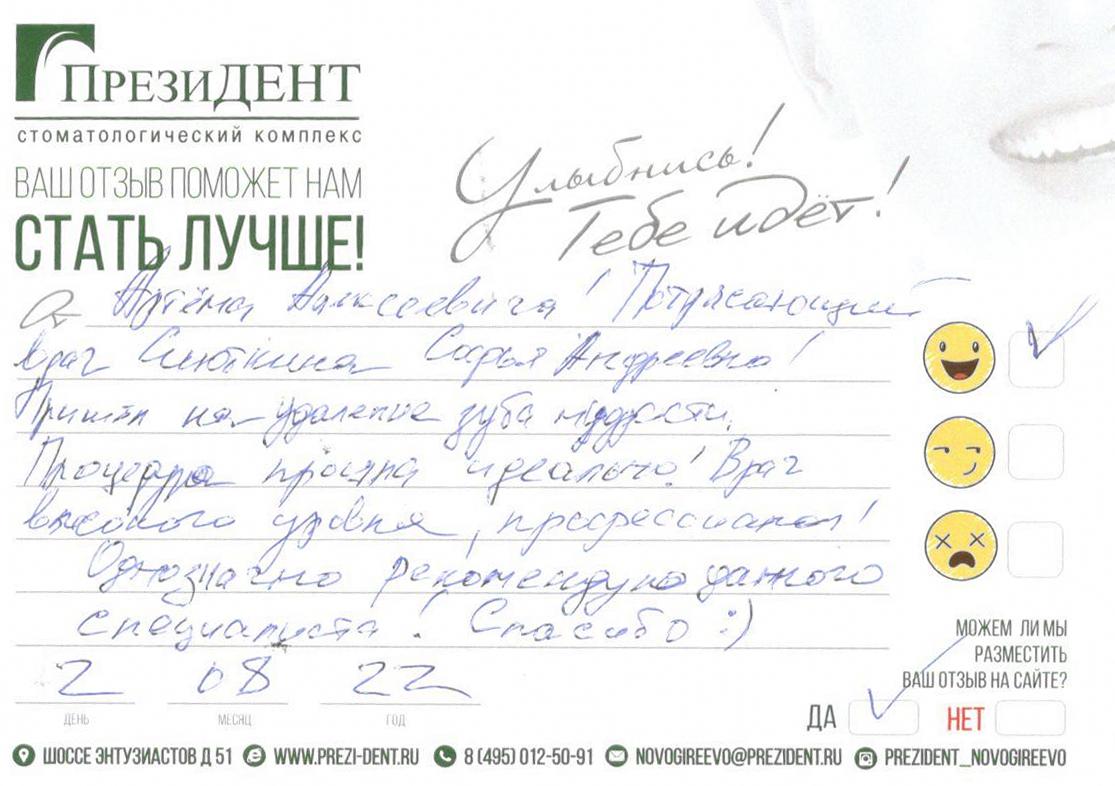 ПрезиДЕНТ
СТОМАТОЛОГИЧЕСКИЙ КОМПЛЕКС
ВАШ ОТЗЫВ ПОМОЖЕТ НАМ
СТАТЬ ЛУЧШЕ!
Улыбнись!
Тебе идёт!
От Артёма Алексеевича! Потрясающий
врач Сюткина Софья Андреевна!
Пришёл на удаление зуба мудрости.
Процедура прошла идеально! Врач
высокого уровня, профессионал!
Однозначно рекомендую данного
специалиста! Спасибо :)
2 08 22
ДЕНЬ МЕСЯЦ ГОД
МОЖЕМ ЛИ МЫ
РАЗМЕСТИТЬ
ВАШ ОТЗЫВ НА САЙТЕ?
ДА НЕТ
ШОССЕ ЭНТУЗИАСТОВ Д 51 WWW.PREZI-DENT.RU 8 (495) 012-50-91 NOVOGIREEVO@PREZIDENT.RU PREZIDENT_NOVOGIREEVO